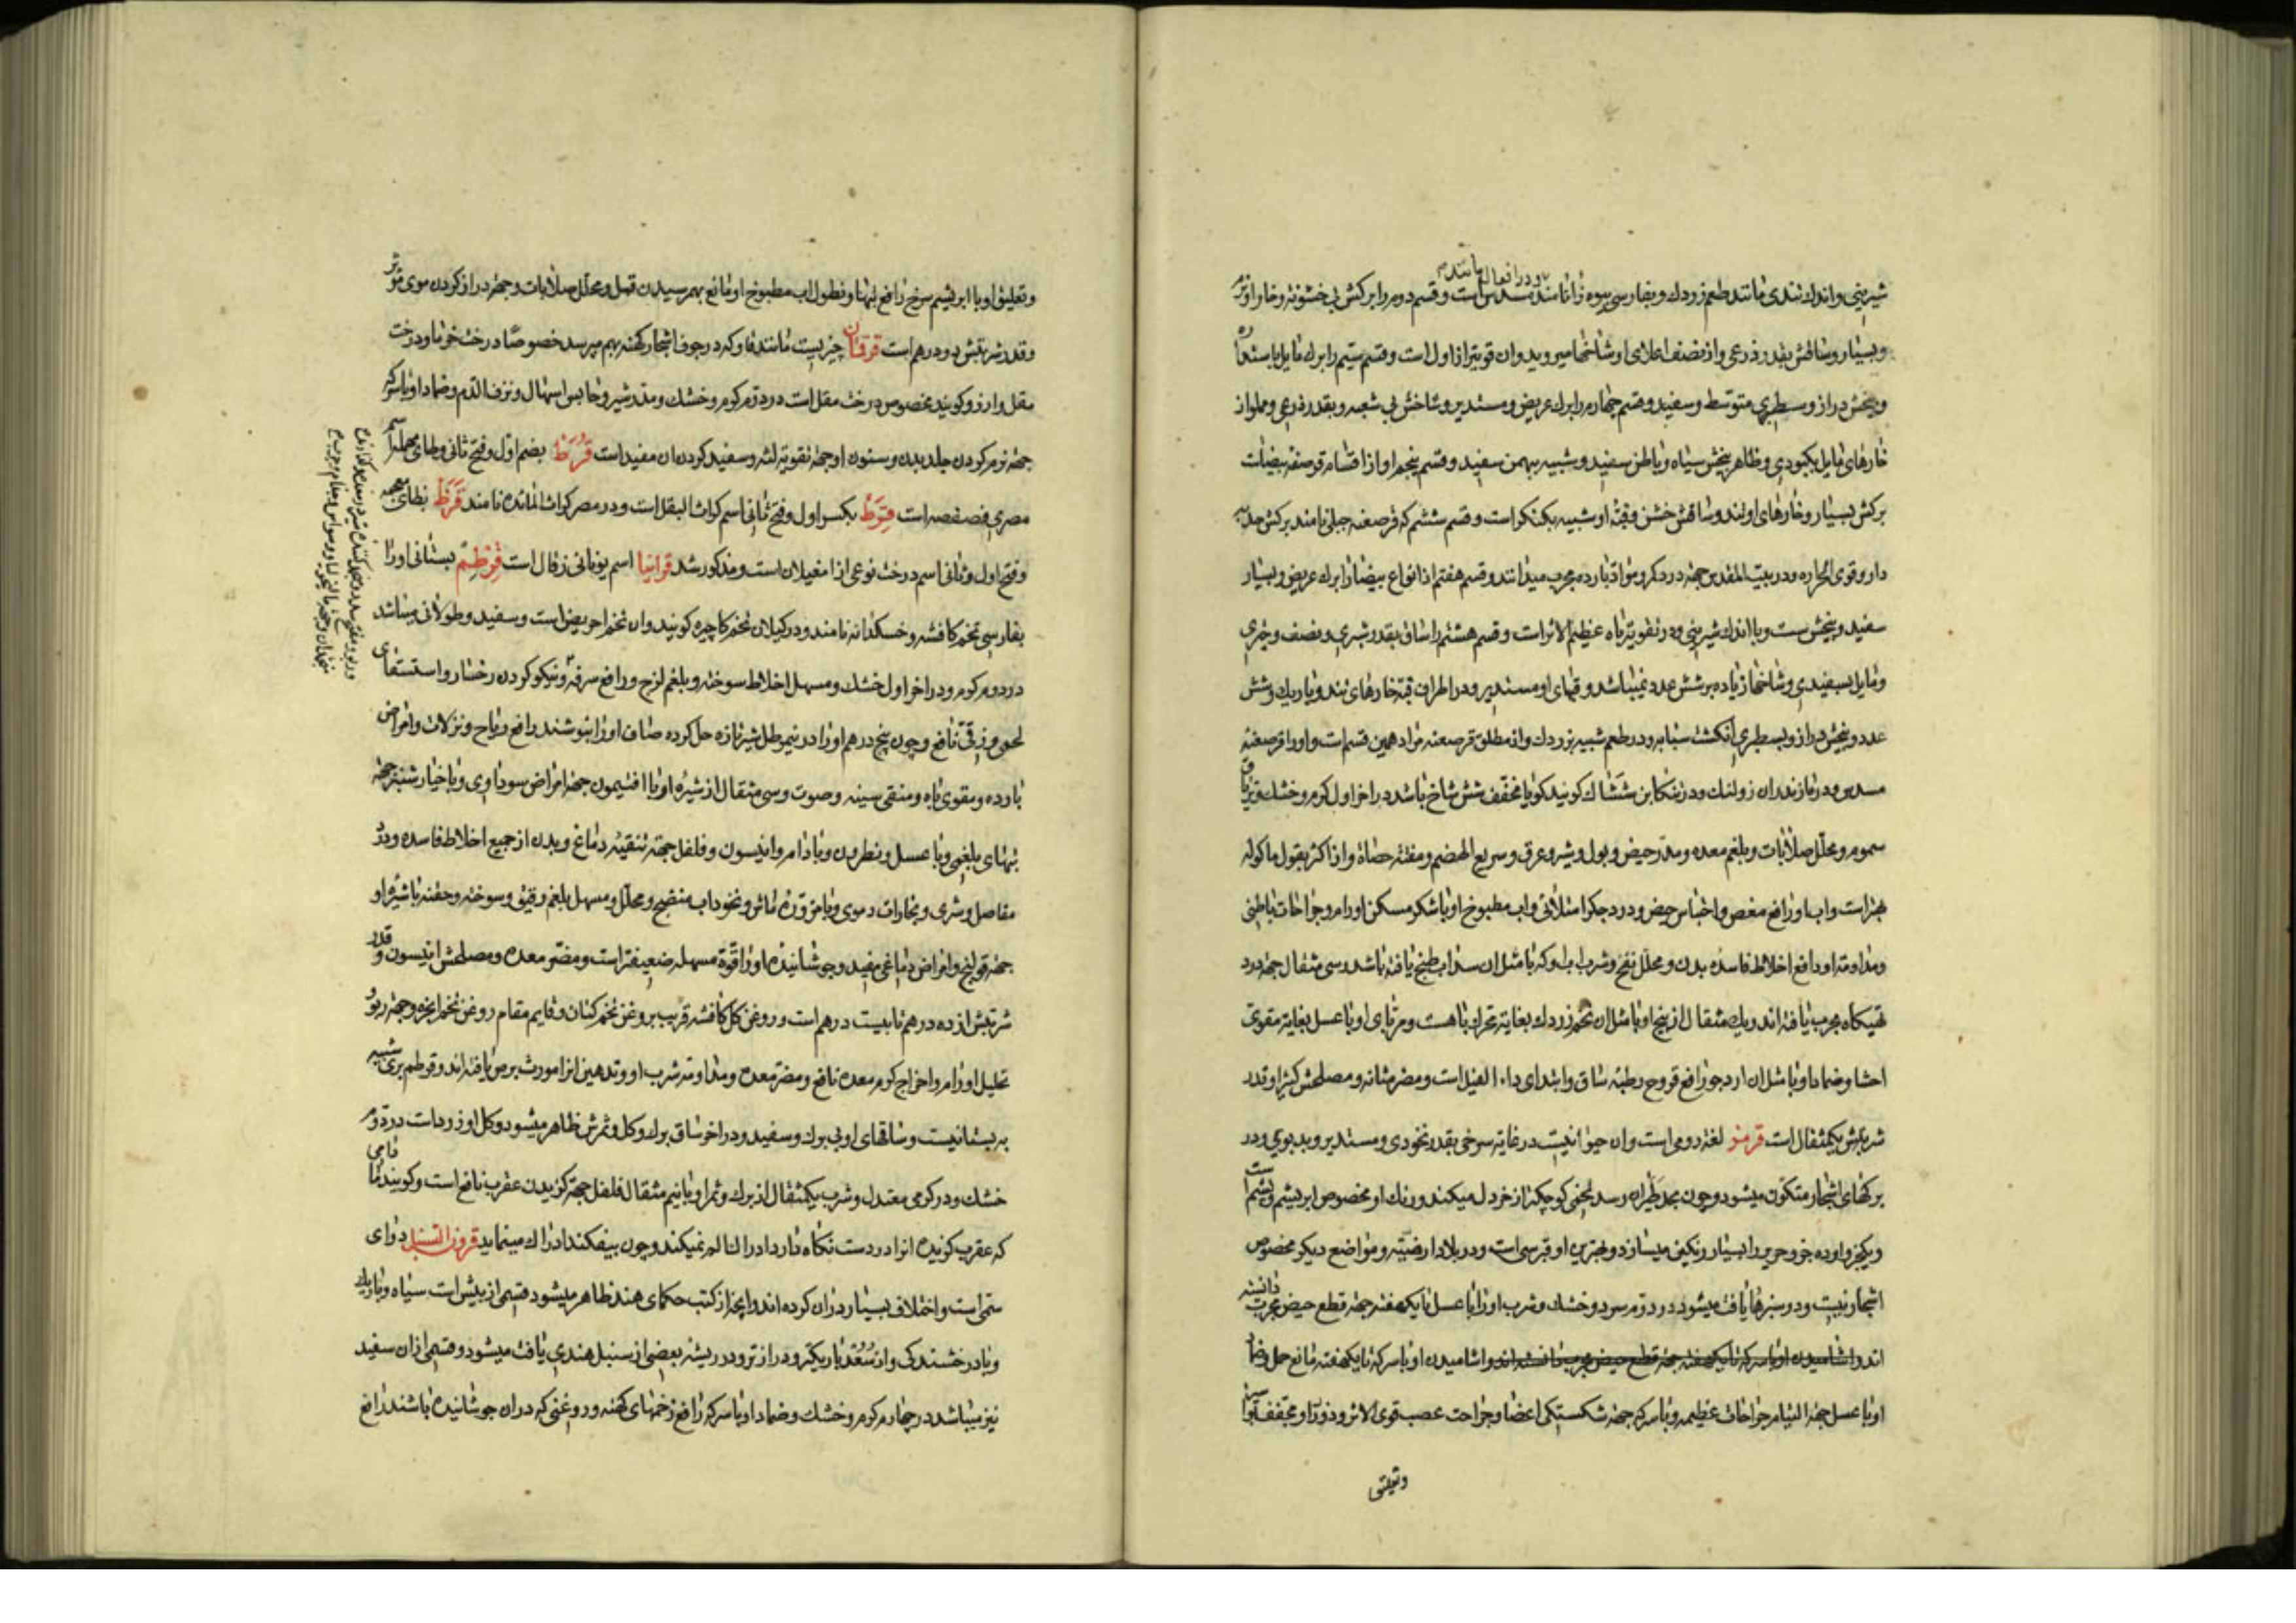 شیرینی و اندک تندی مانند طعم زردک و بفارسی بیوه زا نامند مسدس است و قسم دوم را برکش بی خشونة و خار او نرم
و در افعال مانند
و بسیار و ساقش بقدر ذرعی و از نصف اعلای او شاخها میروید و ان قویتر از اول است و قسم سیم را برک مایل باستداره
و بیخش دراز و سطبری متوسط و سفید و قسم چهارم را برک عریض و مستدیر و شاخش بی شعبه و بقدر ذرعی و مملو از
خارهای مایل بکبودی و ظاهر بیخش سیاه و باطن سفید و شبیه ببهمن سفید و قسم پنجم او از اقسام قرصعنه بیضاست
برکش بسیار و خارهای او تند و ساقش خشن و قبه او شبیه بکنکر است و قسم ششم که قرصعنه جبلی نامند برکش
دار و قوی الحراره و در بیت المقدس جهة درد کمر و مواد بارده مجرب میدانند و قسم هفتم از انواع بیضا را برک عریض و بسیار
سفید و بیخش ست و با اندک شیرینی و در تقویة باه عظیم الاثر است و قسم هشتم را ساق بقدر شبری و نصف و خیری
و مایل بسفیدی و شاخها زیاده بر شش عدد نمیباشد و قبهای او مستدیر و در اطراف قبه خارهای تند و باریک و شش
عدد و بیخش دراز و بسطبری انکشت سبابه و در طعم شبیه بزردک و از مطلق قرصعنه مراد همین قسم است و او را قرصعنه
مسدس و در مازندران زولنک و در تنکابن ششاک کویند کویا مخفف شش شاخ باشد در اخر اول کرم و خشک و تریاق
سموم و محلل صلابات و بلغم معده و مدر حیض و بول و شیر و عرق و سریع الهضم و مفتت حصاة و از اکثر بقول ماکوله
بهتر است و اب او رافع مغص و احتباس حیض و درد جکر امتلائی و اب مطبوخ او با شکر مسکن اورام و جراحات باطنی
و مداومة او دافع اخلاط فاسده بدن و محلل نفخ و شرب اب او که با مثل ان سداب طبخ یافته باشد و سی مثقال جهة درد
تهیکاه مجرب یافته اند و یک مثقال از بیخ او با مثل ان تخم زردک بغایة محرک باهست و مربای او با عسل بغایة مقوی
احشا و ضماد او با مثل ان ارد جو رافع قروح رطبه ساق و ابتدای داء الفیل است و مضر مثانه و مصلحش کثیرا و قدر
شربتش یکمثقال است قرمز لغة رومی است و ان حیوانیست در غایة سرخی بقدر نخودی و مستدیر و بد بوی و در
برکهای اشجار متکون میشود و چون بحد طیران رسد تخمی کوچکتر از خردل میکند و رنک او مخصوص ابریشم و پشم است
و بکجز و او ده جزو حریر را بسیار رنکین میسازد و بهترین او قبرسی است و در بلاد ارمنیه و مواضع دیکر مخصوص
اشجار نیست و در سبزها یافت میشود در دوم سرد و خشک و شرب او را با عسل تا یکهفته جهة قطع حیض مجرب دانسته
اند و اشامیدن او با سرکه تا یکهفته جهة قطع حیض مجرب دانسته اند و اشامیدن او با سرکه تا یکهفته مانع حمل و ضماد
او با عسل جهة التیام جراحات عظیمه و با سرکه جهة شکستکی اعضا و جراحت عصب قوی الاثر و ذرور او مجفف بواسیر
و تعلیق
و تعلیق او با ابریشم سرخ رافع تبها و نطول اب مطبوخ او مانع بهم رسیدن قمل و محلل صلابات و جهة دراز کردن موی موثر
و قدر شربتش دو درهم است قرقان چیزیست مانند قاو که در جوف اشجار کهنه بهم میرسد خصوصا درخت خرما و درخت
مقل و ارز و کویند مخصوص درخت مقل است در دوم کرم و خشک و مدر شیر و حابس اسهال و نزف الدم و ضماد او با سرکه
جهة نرم کردن جلد بدن و سنون او جهة تقویة لثه و سفید کردن ان مفید است قرط بضم اول و فتح ثانی و طای مهمله اسم
مصری فصفصه است قرط بکسر اول و فتح ثانی اسم کراث البقل است و در مصر کراث المائده نامند قرظ بظای معجمه
و فتح اول و ثانی اسم درخت نوعی از امغیلان است و مذکور شد قرانیا اسم یونانی زقال است قرطم بستانی او را
بفارسی تخم کافشه و خسکدانه نامند و در کیلان تخم کاجیره کویند و ان تخم احریض است و سفید و طولانی میباشد
در دوم کرم و در اخر اول خشک و مسهل اخلاط سوخته و بلغم لزج و رافع سرفه و نیکو کردن رخسار و استسقای
لحمی و زقی نافع و چون پنج درهم او را در نیم رطل شیر تازه حل کرده صاف او را بنوشند رافع ریاح و نزلات و امراض
بارده و مقوی باه و منقی سینه و صوت و سی مثقال از شیره او با افتیمون جهة امراض سوداوی و با خیارشنبر جهة
تبهای بلغمی و با عسل و نطرون و بادام و انیسون و فلفل جهة تنقیه دماغ و بدن از جمیع اخلاط فاسده و درد
مفاصل و شری و بخارات دموی و با مزوره ماش و نخوداب منضج و محلل و مسهل بلغم رقیق و سوخته و حقنه با شیره او
جهة قولنج و امراض دماغی مفید و جوشانیده او را قوة مسهله ضعیفتر است و مضر معده و مصلحش انیسون و قدر
شربتش از ده درهم تا بیست درهم است و روغن کل کافشه قریب بروغن تخم کتان و قایم مقام روغن تخم انجره و جهة ربو و
تحلیل اورام و اخراج کرم معده نافع و مضر معده و مداومة شرب او و تدهین انرا مورث برص یافته اند و قرطم بری شبیه
به بستانیست و ساقهای او بی برک و سفید و در اخر ساق برک و کل و ثمرش ظاهر میشود و کل او زرد است در دوم
خشک و در کرمی معتدل و شرب یکمثقال از برک و ثمر او با نیم مثقال فلفل جهة کزیدن عقرب نافع است و کویند مادامی
که عقرب کزیده انرا در دست نکاه دارد ادراک الم نمیکند و چون بیفکند ادراک مینماید قرون السنبل دوای
سمی است و اختلاف بسیار در ان کرده اند و انچه از کتب حکمای هند ظاهر میشود قسمی از بیش است سیاه و باریک
و با درخشندکی و از سعد باریکتر و درازتر و در ریشه بعضی از سنبل هندی یافت میشود و قسمی از ان سفید
نیز میباشد در چهارم کرم و خشک و ضماد او با سرکه رافع زخمهای کهنه و روغنی که در ان جوشانیده باشند رافع